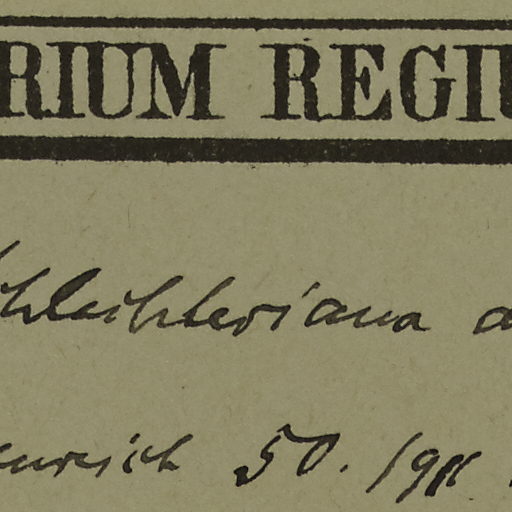 RIUM REGIU
chlechteriana a
50. 1911